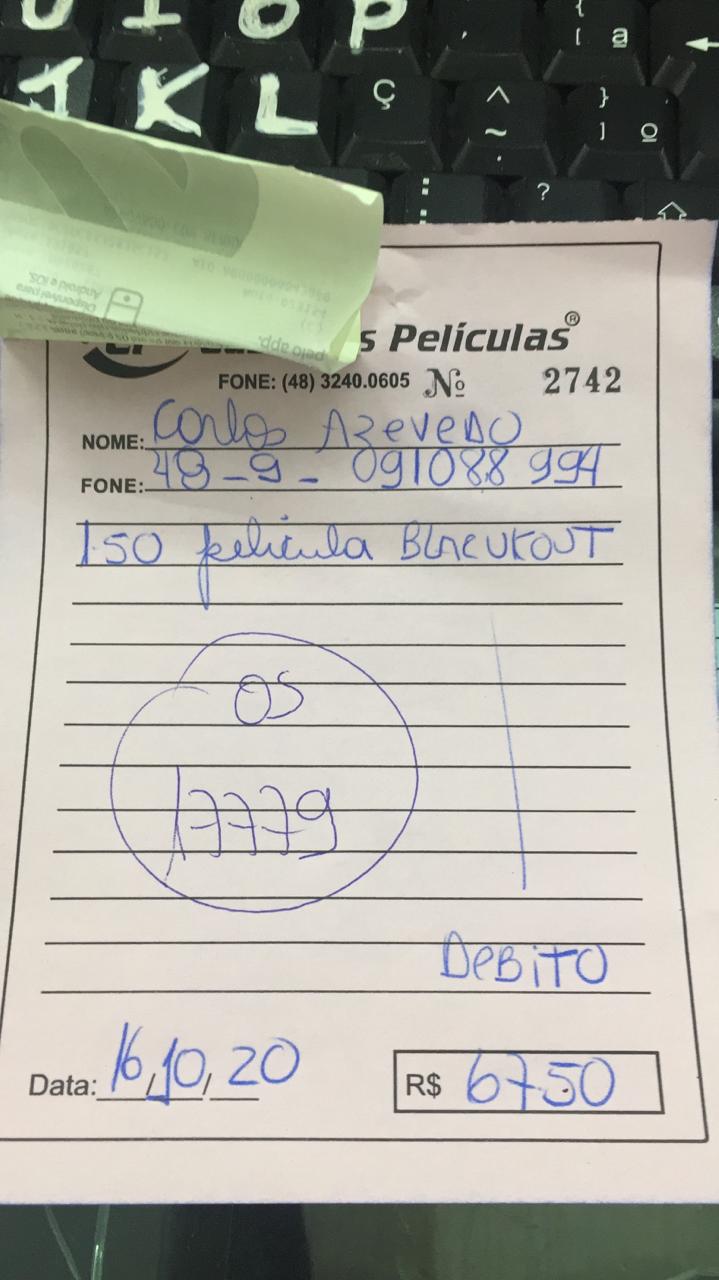 U I O P
[ ª
J K L Ç ^ ~ } ] º
: ?
pelo app.
Disponível para
Android e iOS.
s Películas®
FONE: (48) 3240.0605 Nº 2742
NOME: Carlos Azevedo
FONE: 48-9-091088994
1.50 película BLACUKOUT
OS
17779
DEBiTO
Data: 16/10/20 R$ 67.50